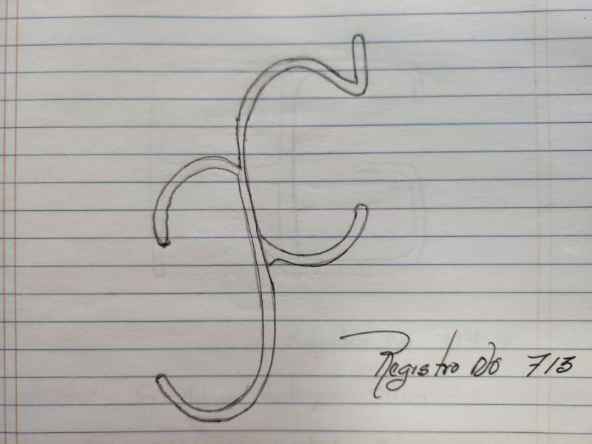 Registro No 713